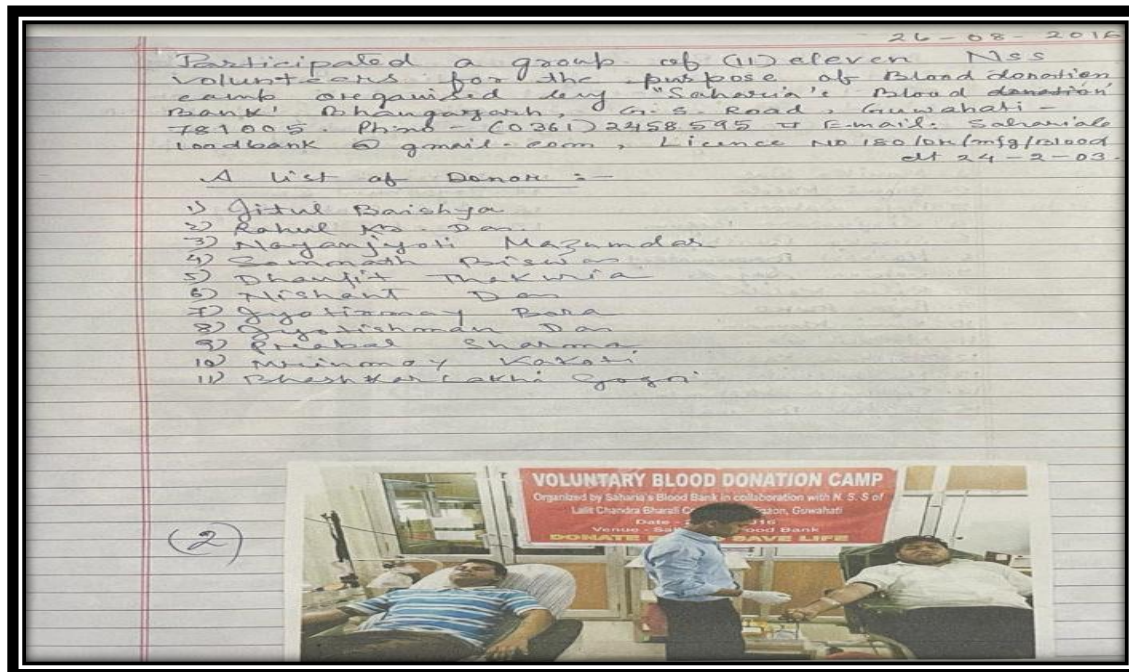 26-08-2016
Participated a group of (11) eleven Nss
volunteers for the purpose of Blood donation
camp oreganised by "Saharia's Blood donation
Bank' Bhangagarh, G.S Road, Guwahati -
781005. Phno - (0361) 2458595 Email. Sahariab
loodbank @ gmail.com, Licence NO 180/DR/mfg/Blood
dt 24-2-03.
A list of Donor :-
1) Jitul Baishya
2) Rahul Kr. Das.
3) Nayanjyoti Mazumdar
4) Somnath Biswas
5) Dhanjit Thakuria
6) Nishant Das
7) Jyotirmoy Bora
8) Jyotishman Das
9) Prabal Sharma
10) Mrinmoy Kakoti
11) Bhashkar Lakhi Gogoi
(2)
VOLUNTARY BLOOD DONATION CAMP
Organized by Saharia's Blood Bank in collaboration with N. S. S of
Lalit Chandra Bharali Guwahati
Date - 2016
Venue - Bank
DONATE SAVE LIFE